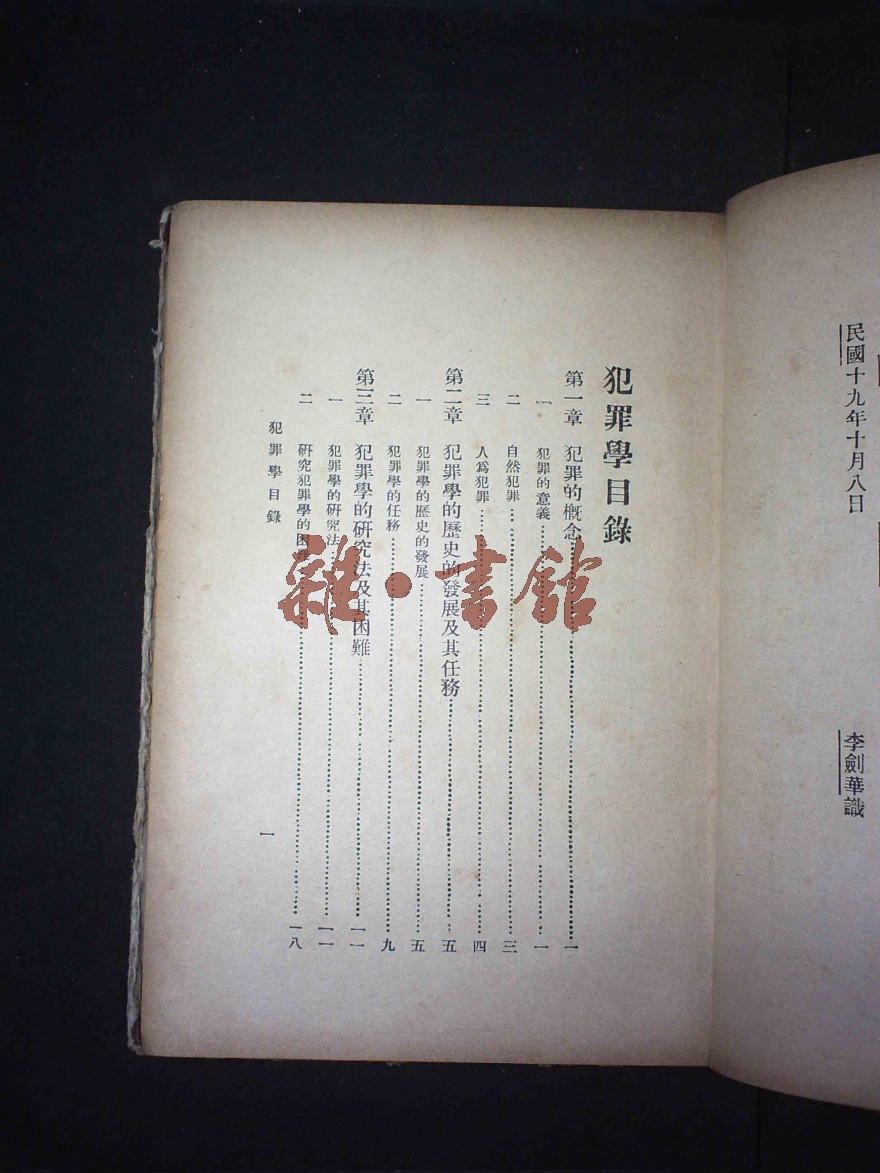 民國十九年十月八日
李劍華識
犯罪學目錄
第一章 犯罪的概念……一
一 犯罪的意義……一
二 自然犯罪……三
三 人爲犯罪……四
第二章 犯罪學的歷史的發展及其任務……五
一 犯罪學的歷史的發展……五
二 犯罪學的任務……九
第三章 犯罪學的研究法及其困難……一一
一 犯罪學的研究法……一一
二 研究犯罪學的困難……一八
犯罪學目錄
一
雜·書館